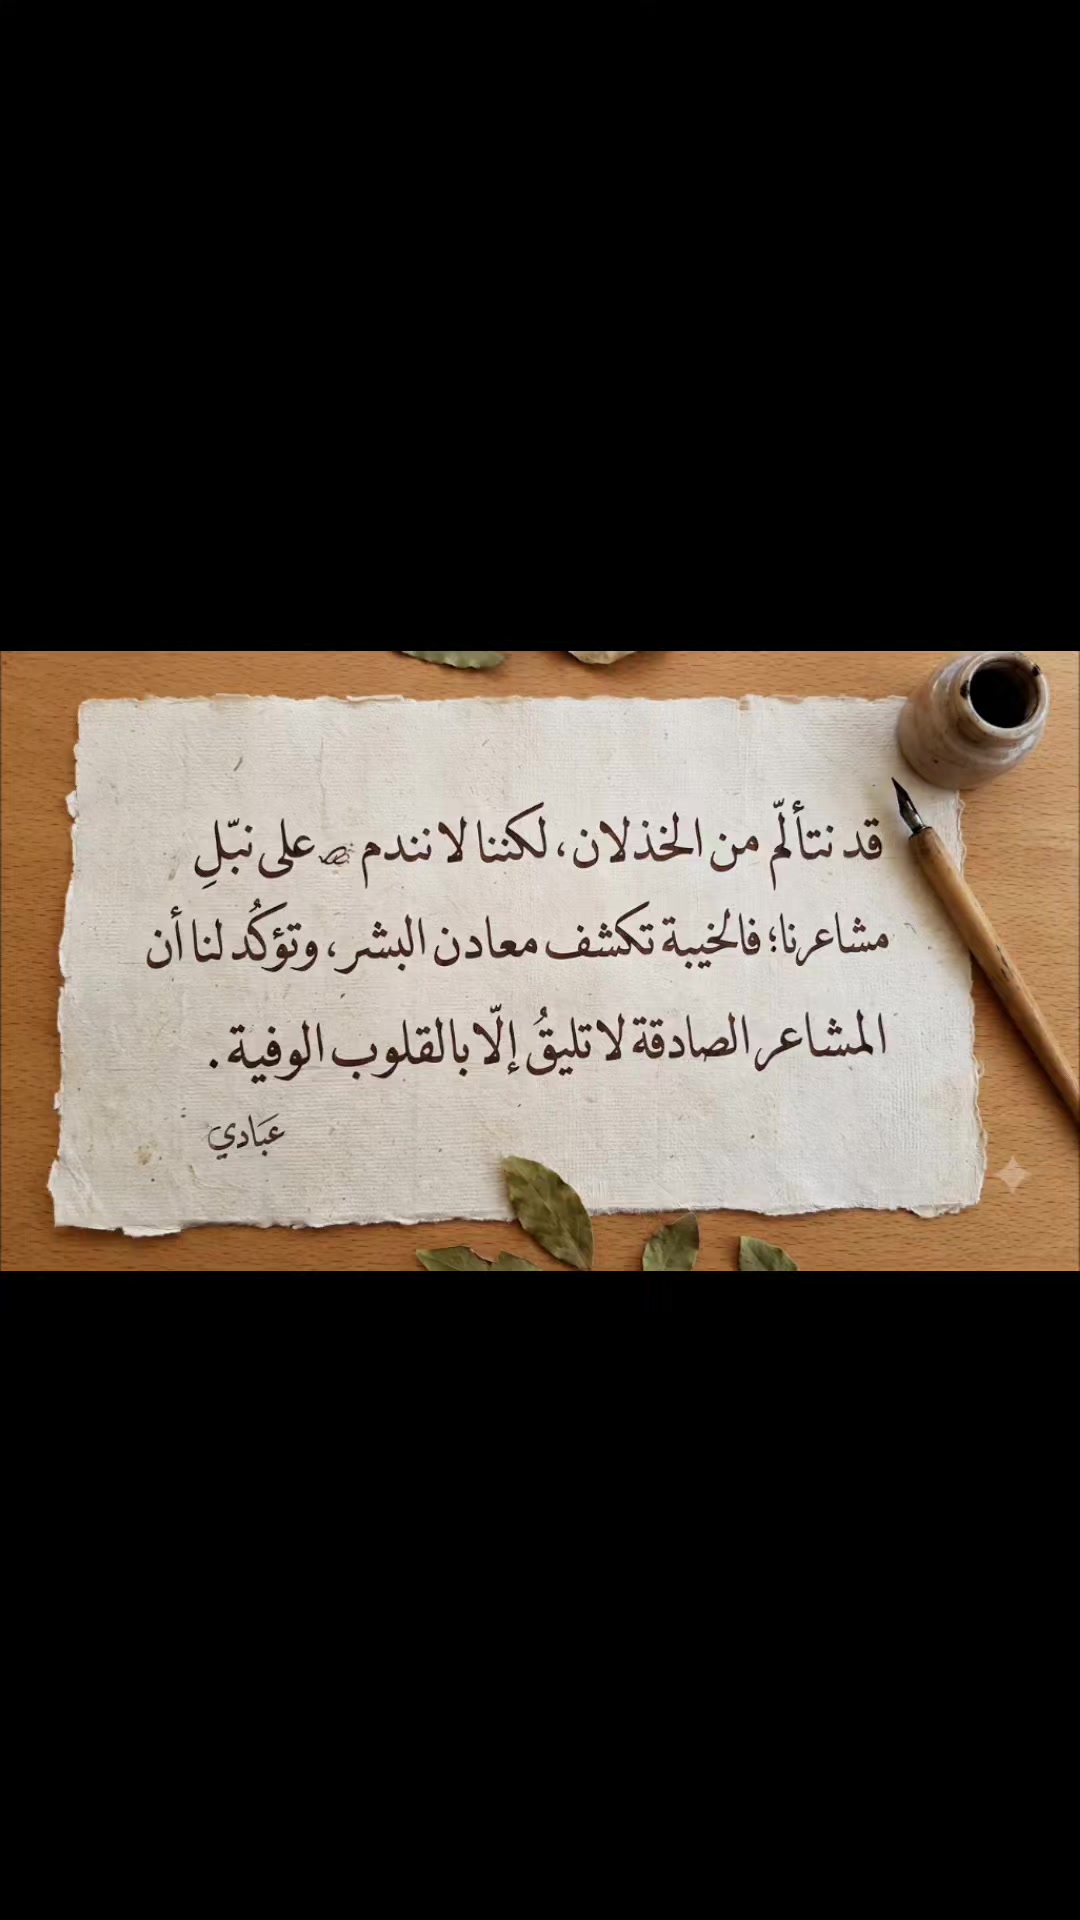 قد نتألّم من الخذلان، لكننا لا نندم على نبّلِ
مشاعرنا؛ فالخيبة تكشف معادن البشر، وتؤكُد لنا أن
المشاعر الصادقة لا تليقُ إلّا بالقلوب الوفية.
عبَادي